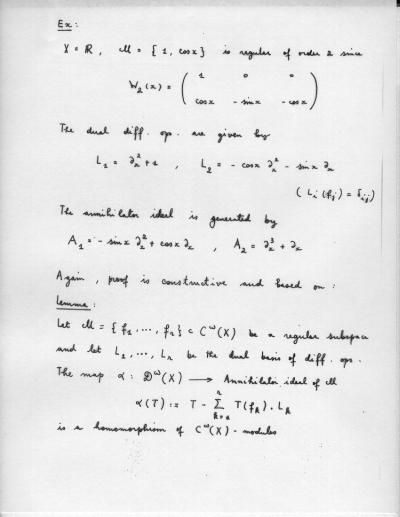 Ex:
X = ℝ, M = { 1, cos x } is regular of order 2 since
W₂(x) = ( 1 0 0
cos x - sin x - cos x )
The dual diff. op. are given by
L₁ = ∂ₓ² + 1 , L₂ = - cos x ∂ₓ² - sin x ∂ₓ
( Lᵢ (fⱼ) = δᵢⱼ )
The annihilator ideal is generated by
A₁ = - sin x ∂ₓ² + cos x ∂ₓ , A₂ = ∂ₓ³ + ∂ₓ
Again, proof is constructive and based on :
Lemma :
Let M = { f₁, ..., fᵣ } ⊂ C^ω(X) be a regular subspace
and let L₁, ..., Lᵣ be the dual basis of diff. op.
The map α : 𝒟^ω(X) ⟶ Annihilator ideal of M
α(T) := T - Σ T(f_k) · L_k
is a homomorphism of C^ω(X) - modules